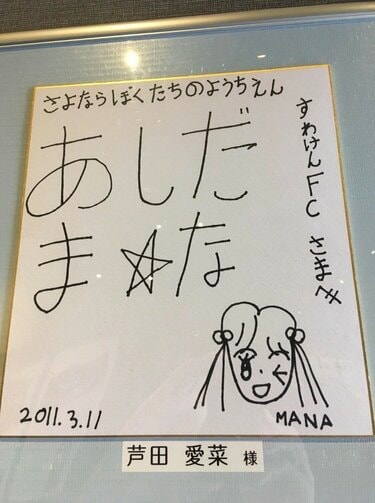 さよならぼくたちのようちえん
あしだ
ま☆な
すわけんFCさまへ
2011.3.11
MANA
芦田 愛菜 様